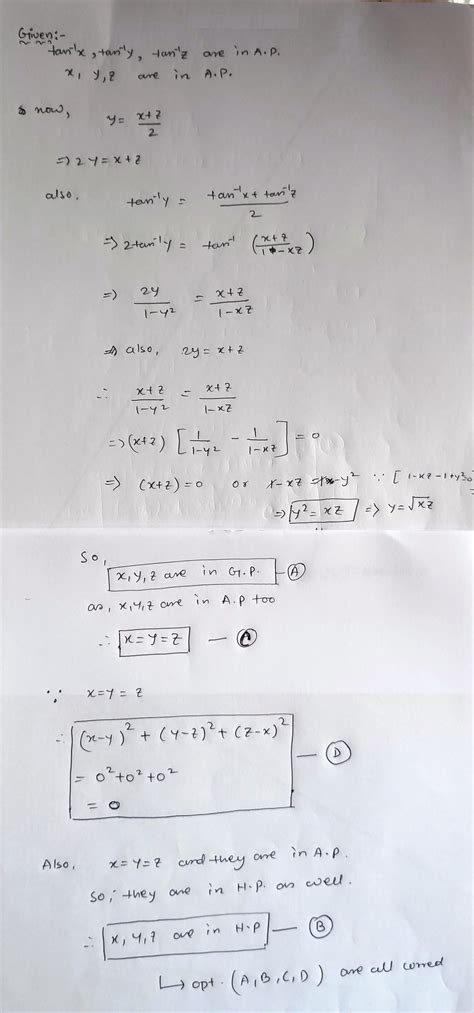 Given:-
tan⁻¹x, tan⁻¹y, tan⁻¹z are in A.P.
x, y, z are in A.P.
now, y = (x+z)/2
=> 2y = x+z
also, tan⁻¹y = (tan⁻¹x + tan⁻¹z)/2
=> 2tan⁻¹y = tan⁻¹ ((x+z)/(1-xz))
=> 2y/(1-y²) = (x+z)/(1-xz)
=> also, 2y = x+z
∴ (x+z)/(1-y²) = (x+z)/(1-xz)
=> (x+z) [1/(1-y²) - 1/(1-xz)] = 0
=> (x+z) = 0 or 1-xz = 1-y² ∵ [1-xz-1+y²=0
=> y² = xz => y = √xz
So,
x, y, z are in G.P. — A
as, x, y, z are in A.P too
∴ x = y = z — C
∵ x = y = z
∴ (x-y)² + (y-z)² + (z-x)²
= 0² + 0² + 0²
= 0 — D
Also, x = y = z and they are in A.P.
So, they are in H.P. as well.
∴ x, y, z are in H.P — B
↳ opt. (A, B, C, D) are all correct